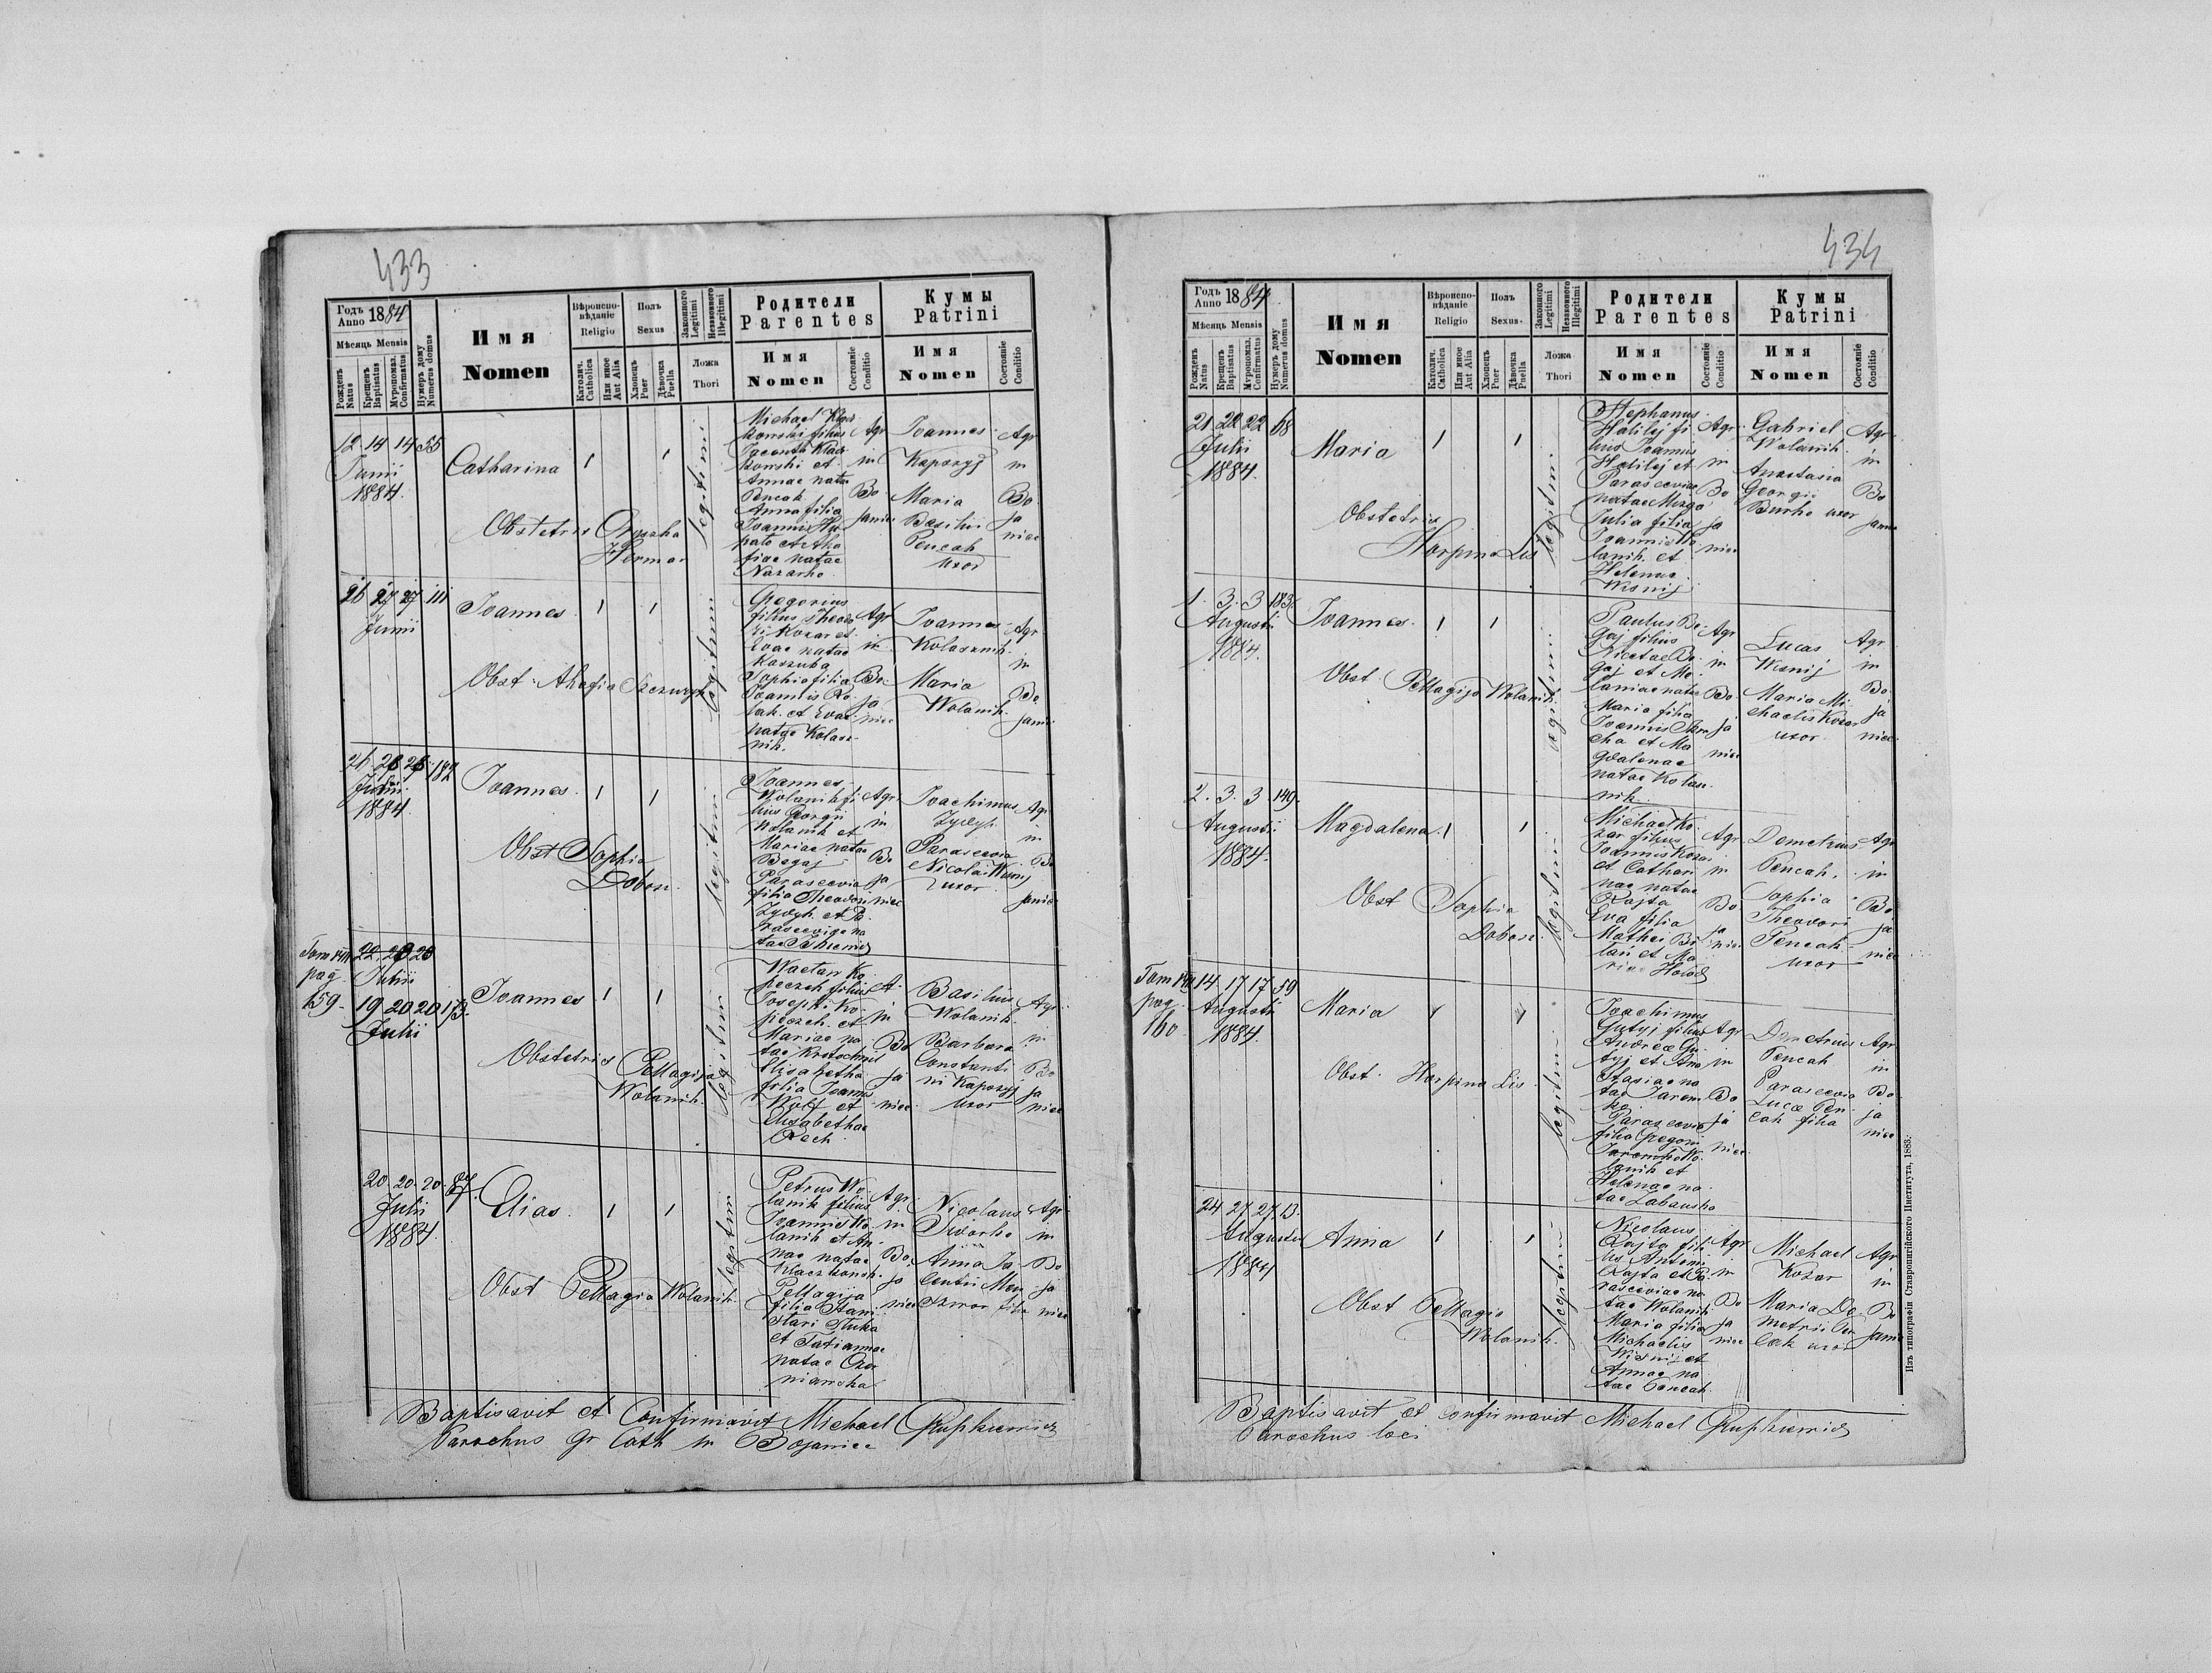 433
Годъ Anno 1884
Мѣсяць Mensis
Рожденъ Natus
Крещенъ Baptisatus
Мνропомаз. Confirmatus
Нумеръ дому Numerus domus
Имя
Nomen
Вѣроиспо-
вѣданіе
Religio
Католич. Catholica
Или иное Aut Alia
Полъ
Sexus
Хлопецъ Puer
Дѣвочка Puella
Законного Legitimi
Незаконного Illegitimi
Ложа
Thori
Родители
Parentes
Имя
Nomen
Состояніе Conditio
Кумы
Patrini
Имя
Nomen
Состояніе Conditio
12 14 14 55
Junii
1884.
Catharina
Obstetrix
Hermor
legitimi
Michael
konski filius
konski et
Annae natae
Pencak
Anna filia
Joannis Hu
fiae natae
Nazarko
Agr
in
Bo
janiec
Joannes
Kaporyj
Maria
Basilii
Pencak
uxor
Agr
in
Bo
ja
niec
26 27 27 111
Junii
Joannes
Obst.
legitimi
Gregorius
filius Theodo
ri Kozar et
Evae natae
Kaszuba
Sophia filia
Joannis Ro
bak et Evae
natae Kolasz
nik.
Agr
in
Bo
ja
niec
Joannes
Kolasznik
Maria
Wolanik
Agr
in
Bo
janiec
182
1884.
Joannes
Obst Sophia
Dobosz
legitimi
Joannes
Wolanik fi
lius Georgii
Wolanik et
Mariae natae
Begaj
Parascevia
filia Theodori
Zydyk et Pa
rasceviae na
tae
Agr.
in
Bo
ja
niec
Joachimus
Zydyk
Parascevia
Nicolai
uxor
Agr
in
Bo
janiec
Tom
pag.
159
Julii
19 20 20 173.
Julii
Joannes
Obstetrix Pellagija
Wolanik
legitimi
Josephi Ko
Mariae na
tae
Elisabetha
filia Joannis
Wolf et
Elisabethae
Rech
in
Bo
ja
niec
Basilius
Wolanik
Barbara
Constanti
ni Kaporyj
uxor
Agr.
in
Bo
ja
niec
20 20 20 87
Julii
1884.
Elias
Obst Pellagia Wolanik
legitimi
Petrus Wo
lanik filius
Joannis Wo
lanik et An
nae natae
Pellagija
filia Stani
slai Stuka
et Tatiannae
natae
Agr.
in
Bo
ja
niec
Nicolaus
Siworko
Anna
filia
Agr
in
Bo
ja
niec
Baptisavit et Confirmavit Michael
Parochus gr Cath in Bojaniec
434
Годъ Anno 1884
Мѣсяць Mensis
Рожденъ Natus
Крещенъ Baptisatus
Мνропомаз. Confirmatus
Нумеръ дому Numerus domus
Имя
Nomen
Вѣроиспо-
вѣданіе
Religio
Католич. Catholica
Или иное Aut Alia
Полъ
Sexus.
Хлопецъ Puer
Дѣвочка Puella
Законного Legitimi
Незаконного Illegitimi
Ложа
Thori
Родители
Parentes
Имя
Nomen
Состояніе Conditio
Кумы
Patrini
Имя
Nomen
Состояніе Conditio
21 22 22 68
Julii
1884.
Maria
Obstetrix
Harpina Lis
legitimi
Stephanus
Halilej fi
lius Joannis
Halilej et
Parasceviae
natae
Julia filia
Joannis Wo
lanik et
Helenae
Wisnij
Agr.
in
Bo
ja
niec
Gabriel
Wolanik
Anastasia
Georgii
Burko uxor
Agr
in
Bo
janiec
1. 3. 3 183.
Augusti
1884.
Joannes
Obst. Pellagija Wolanik
legitimi
Paulus Be
gaj filius
Nicetae Be
gaj et Me
laniae natae
Maria filia
Joannis
cha et Ma
gdalenae
natae Kolasz
nik
Agr
in
Bo
ja
niec
Lucas
Wisnij
Maria Mi
chaelis Kozar
uxor
Agr
in
Bo
ja
niec
2. 3. 3 149.
Augusti
1884.
Magdalena
Obst Sophia
Dobosz
legitimi
Michael Ko
zar filius
Joannis Kozar
et Cathari
nae natae
Rajta
Eva filia
Mathei Bi
lan et Ma
riae
Agr
in
Bo
ja
niec
Demetrius
Pencak.
Sophia
Theodori
Pencak
uxor
Agr
in
Bo
ja
niec
Tom
pag.
160
14 17 17 59
Augusti
1884.
Maria
Obst. Harpina Lis
legitimi
Joachimus
Gutyj filius
Andreae Gu
tyj et Ana
stasiae na
tae Jarem
ko
Parascevia
filia Gregorii
lanik et
Helenae na
tae
Agr
in
Bo
ja
niec
Demetrius
Pencak
Parascevia
Lucae Pen
cak filia
Agr
in
Bo
ja
niec
24 27 27 13.
Augusti
1884
Anna
Obst Pellagia
Wolanik
legitimi
Nicolaus
Rajta fili
us Antonii
Rajta et Pa
rasceviae na
tae Wolanik
Maria filia
Michaelis
Wisnij et
Annae na
tae Pencak
Agr
in
Bo
ja
niec
Michael
Kozar
Maria De
metrii Pen
cak uxor
Agr
in
Bo
janiec
Baptisavit et confirmavit Michael
Parochus loci
Изъ типографіи Ставропигійского Института, 1883.